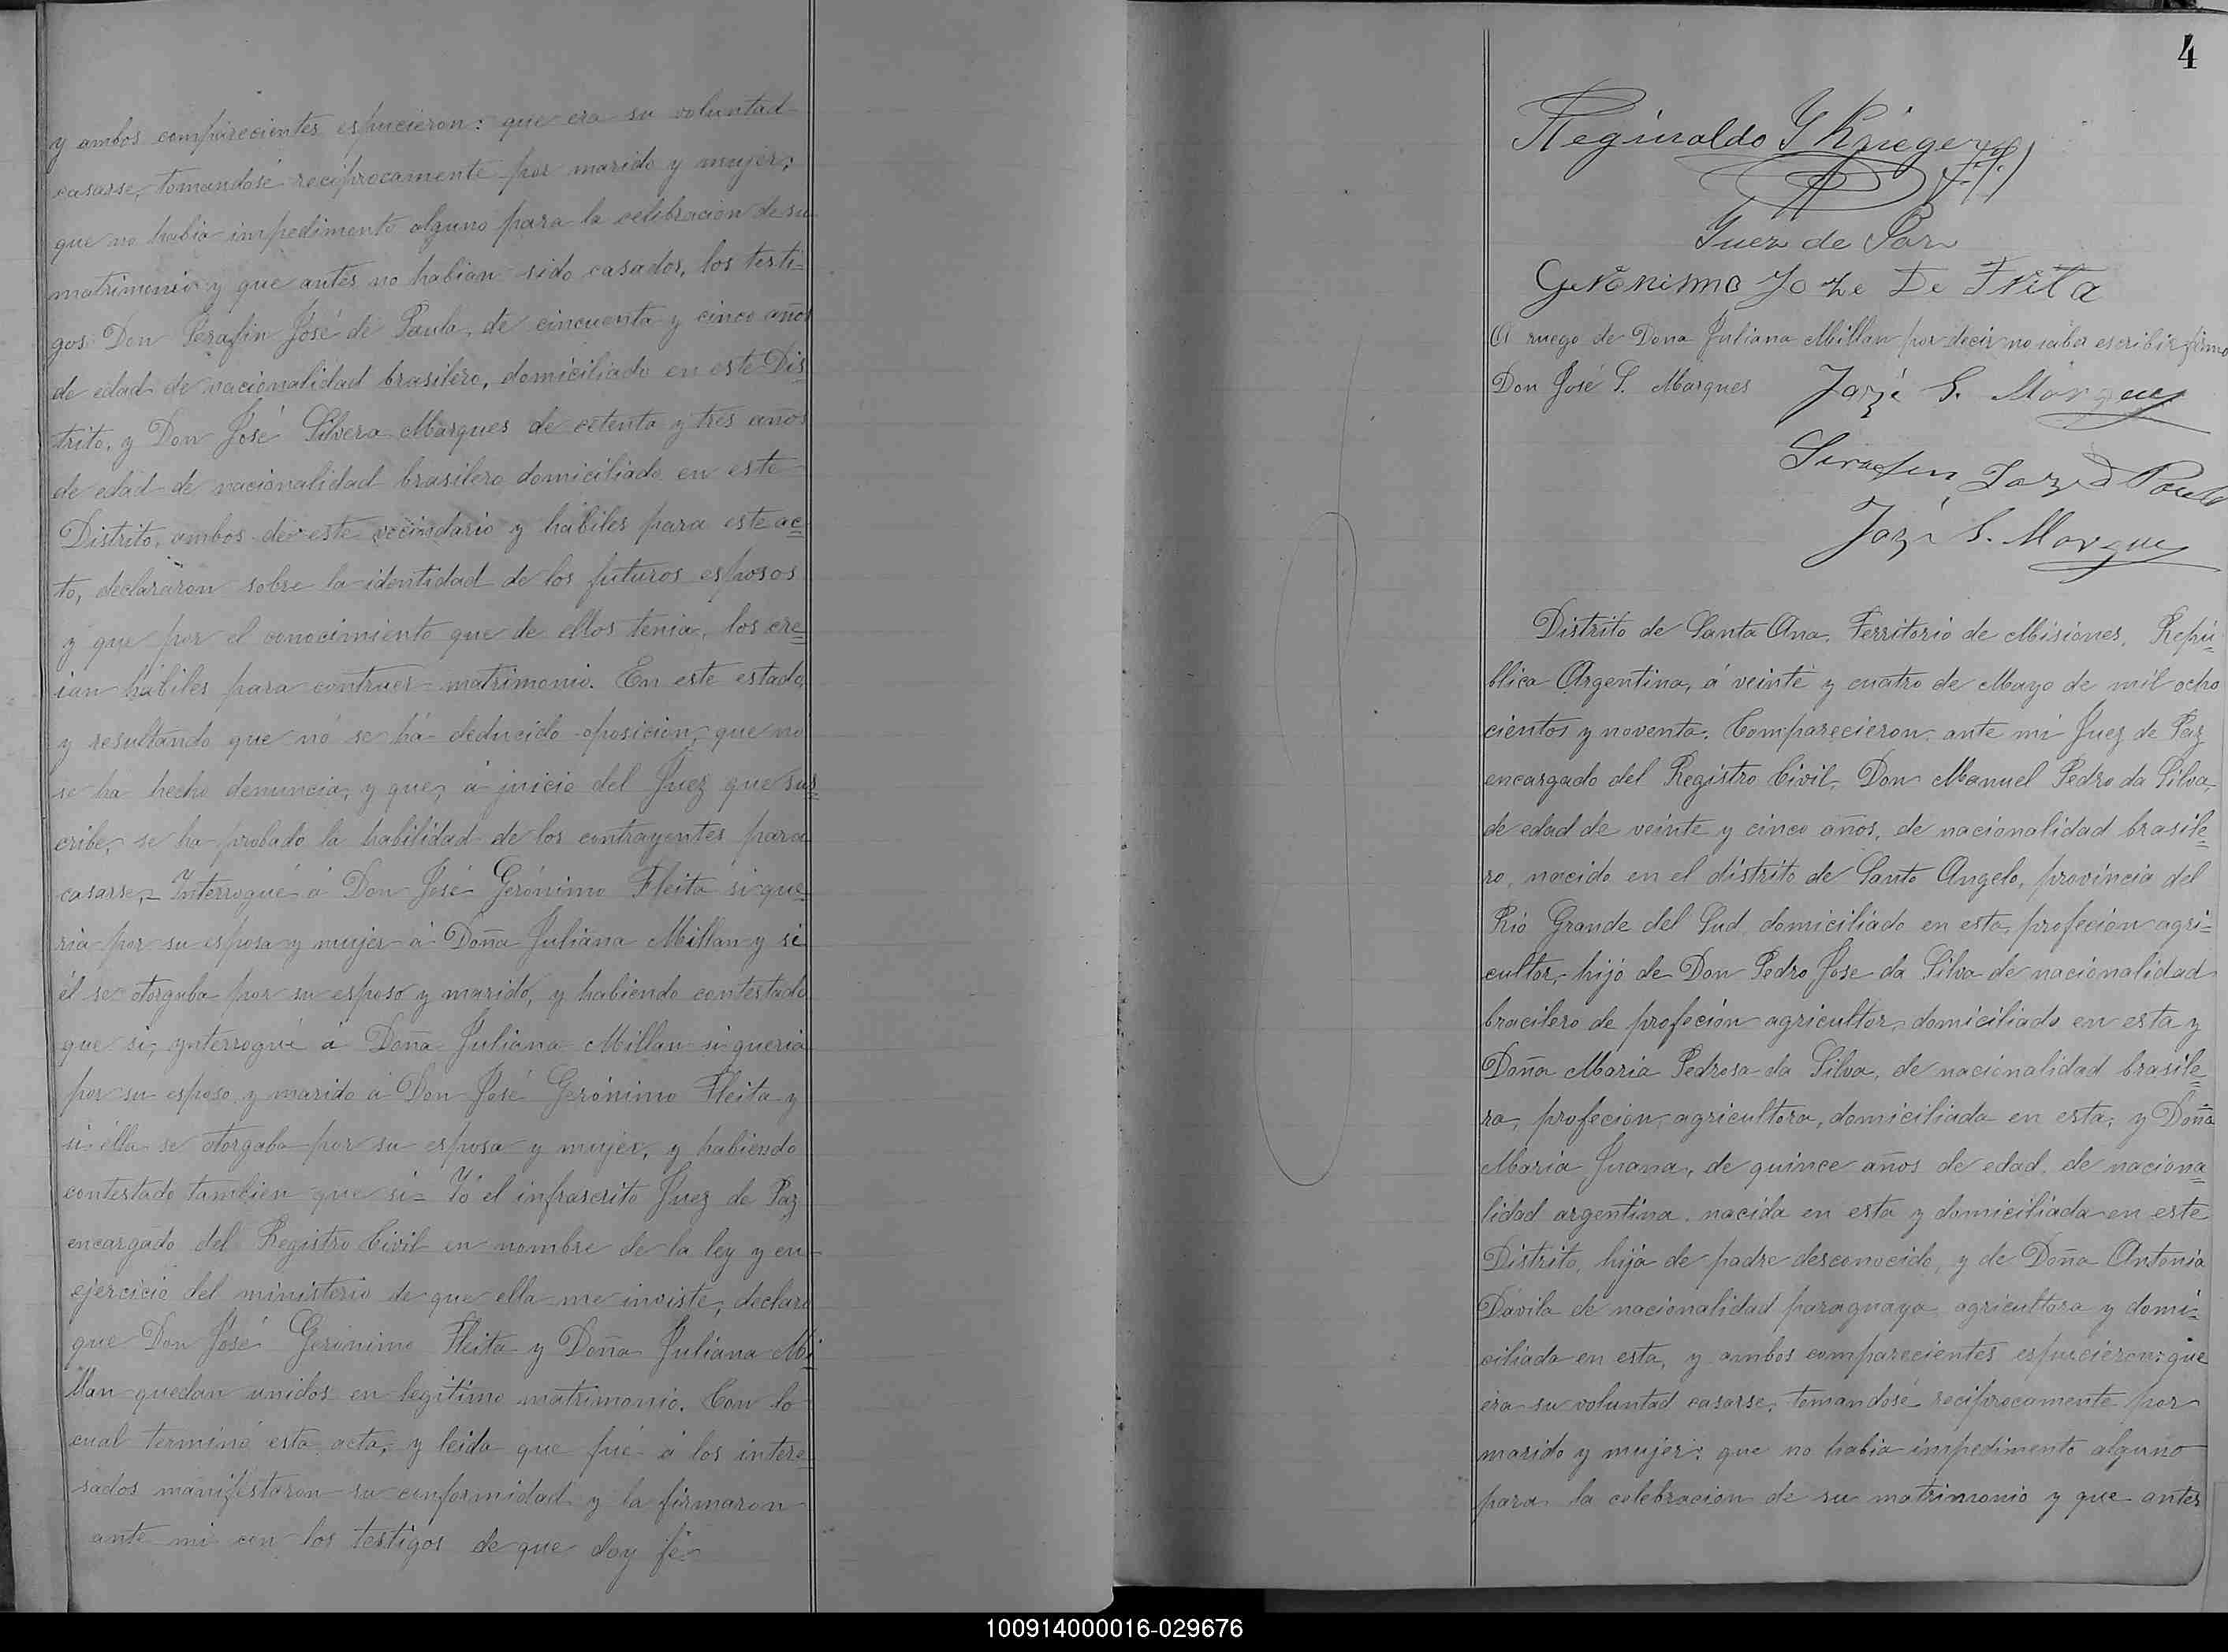 y ambos comparecientes espucieron: que era su voluntad
casarse, tomandose reciprocamente por marido y mujer;
que no habia impedimento alguno para la celebracion de su
matrimonio y que antes no habian sido casados, los testi=
gos Don Serafin José de Paula, de cincuenta y cinco años
de edad de nacionalidad brasilero, domiciliado en este Dis=
trito, y Don José Silvera Marques de cetenta y tres años
de edad de nacionalidad brasilero domiciliado en este
Distrito, ambos de este vecindario y hábiles para este ac=
to, declararon sobre la identidad de los futuros esposos
y que por el conocimiento que de ellos tenia, los cre=
ian hábiles para contraer matrimonio. En este estado,
y resultando que nó se há deducido oposicion, que no
se ha hecho denuncia, y que, á juicio del Juez que sus=
cribe, se ha probado la habilidad de los contrayentes para
casarse,= Interrogué á Don José Gerónimo Fleita si que=
ria por su esposa y mujer á Doña Juliana Millan y si
él se otorgaba por su esposo y marido, y habiendo contestado
que si, ynterrogué á Doña Juliana Millan si queria
por su esposo y marido á Don José Gerónimo Fleita y
si élla se otorgaba por su esposa y mujer, y habiendo
contestado tambien que si= Yó el infrascrito Juez de Paz
encargado del Registro Civil en nombre de la ley y en
ejercicio del ministerio de que ella me inviste, declaro
que Don José Gerónimo Fleita y Doña Juliana Mi=
llan quedan unidos en legitimo matrimonio. Con lo
cual terminó esta acta, y leida que fué á los intere=
sados manifestaron su conformidad y la firmaron
ante mi con los testigos de que doy fé
4
Reginaldo Y Krieger
Juez de Paz
Geronismo Joze De Frita
A ruego de Dona Juliana Millan por decir no saber escribir firmo
Don José S. Marques Jozé S. Marques
Serafin Joze d Paula
Jozé S. Marques
Distrito de Santa Ana, Territorio de Misiones, Repú=
blica Argentina, á veinte y cuatro de Mayo de mil ocho
cientos y noventa. Comparecieron ante mi Juez de Paz
encargado del Registro Civil, Don Manuel Pedro da Silva,
de edad de veinte y cinco años, de nacionalidad brasile=
ro, nacido en el distrito de Santo Angelo, provincia del
Rió Grande del Sud domiciliado en esta, profecion agri=
cultor, hijo de Don Pedro Jose da Silva de nacionalidad
bracilero de profecion agricultor, domiciliado en esta y
Doña Maria Pedrosa da Silva, de nacionalidad brasile=
ra, profecion, agricultora, domiciliada en esta, y Doña
Maria Juana, de quince años de edad, de naciona=
lidad argentina, nacida en esta y domiciliada en este
Distrito, hija de padre desconocido, y de Doña Antonia
Davila de nacionalidad paraguaya agricultora y domi=
ciliada en esta, y ambos comparecientes espucieron: que
éra su voluntad casarse, tomandose reciprocamente por
marido y mujer: que no habia impedimento alguno
para la celebracion de su matrimonio y que antes
100914000016-029676